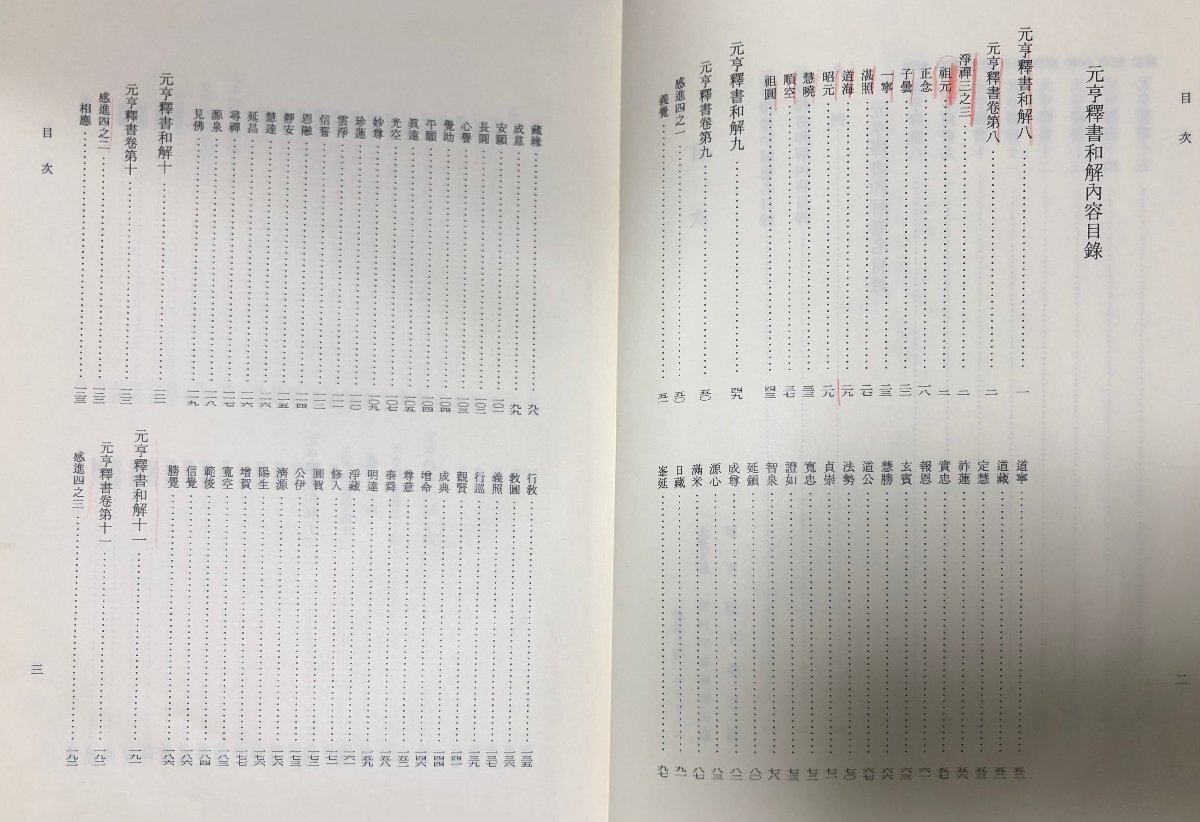 目次
元亨釋書和解內容目錄
元亨釋書和解八……一
元亨釋書卷第八……二
淨禪三之三……二
祖元……二
正念……一八
子曇……二一
一寧……二三
湛照……二七
道海……二九
昭元……二九
慧曉……三三
順空……三七
祖圓……四三
元亨釋書和解九……四九
元亨釋書卷第九……五〇
感進四之一……五〇
義覺……五一
道寧……五二
道藏……五二
定慧……五三
祚蓮……五六
實忠……五七
報恩……六一
玄賓……六三
慧勝……六六
道公……六七
法勢……七〇
貞崇……七一
寬忠……七二
證如……七三
智泉……七八
延鎮……八一
成尊……八二
源心……八三
滿米……八七
日藏……九一
峯延……九七
二
藏緣……九八
成意……九九
安願……一〇一
長圓……一〇二
心譽……一〇三
覺助……一〇四
平願……一〇四
眞遠……一〇五
光空……一〇七
妙尊……一〇九
珍蓮……一一〇
雲淨……一一一
信誓……一一二
恩融……一一四
靜安……一一五
慧達……一一六
延昌……一一六
尋禪……一一七
源泉……一一八
見佛……一一九
元亨釋書和解十……一二一
元亨釋書卷第十……一二二
感進四之二……一二二
相應……一二三
行敎……一三五
敎圓……一三六
義照……一三七
行巡……一三九
觀賢……一四一
成典……一四四
增命……一四六
尊意……一五一
泰舜……一五八
明達……一五九
淨藏……一六一
修入……一七一
圓賀……一七四
公伊……一七五
濟源……一七六
陽生……一七六
增賀……一七七
寬空……一八三
範俊……一八四
信覺……一八六
勝覺……一八六
元亨釋書和解十一……一九一
元亨釋書卷第十一……一九二
感進四之三……一九二
目次
三